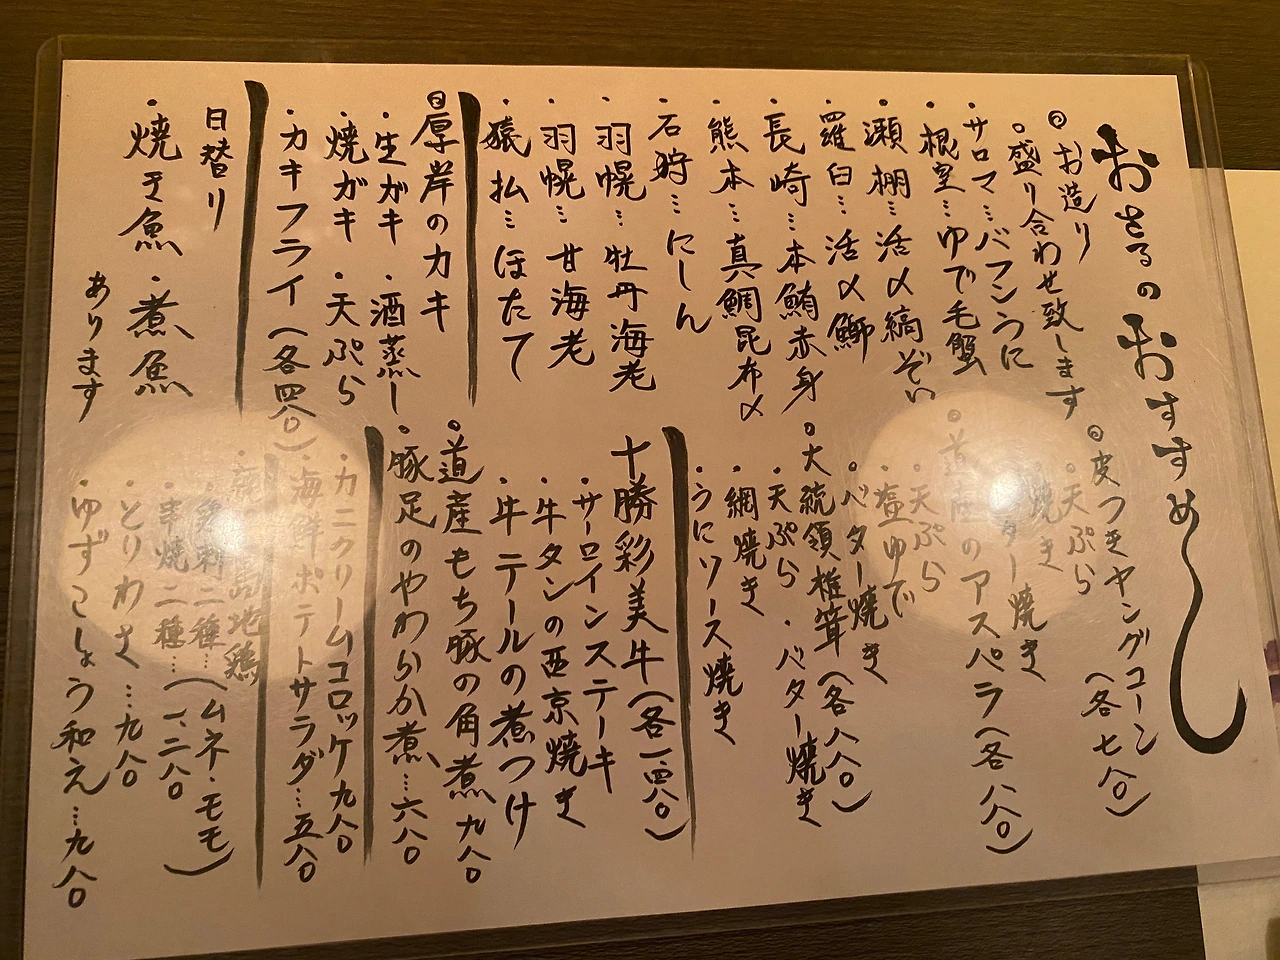 おさるのおすすめし
◎お造り
○盛り合わせ致します
・サロマ…バフンうに
・根室…ゆで毛蟹
・瀬棚…活〆縞ぞい
・羅臼…活〆鰤
・長崎…本鮪赤身
・熊本…真鯛昆布〆
・石狩…にしん
・羽幌…牡丹海老
・羽幌…甘海老
・猿払…ほたて
◎厚岸のカキ
・生ガキ・酒蒸し
・焼ガキ・天ぷら
・カキフライ(各四八〇)
日替り
・焼き魚・煮魚
あります
◎皮つきヤングコーン(各七八〇)
・天ぷら
・焼き
ター焼き
○道産のアスパラ(各八八〇)
・天ぷら
・塩ゆで
・バター焼き
○大統領椎茸(各八八〇)
・天ぷら・バター焼き
・網焼き
・うにソース焼き
十勝彩美牛(各一、四八〇)
・サーロインステーキ
・牛タンの西京焼き
・牛テールの煮つけ
○道産もち豚の角煮九八〇
・豚足のやわらか煮…六八〇
・カニクリームコロッケ九八〇
・海鮮ポテトサラダ…五八〇
島地鶏
刺二種…(ムネ・モモ)
・串焼二種…(一、二八〇
・とりわさ…九八〇
・ゆずこしょう和え…九八〇